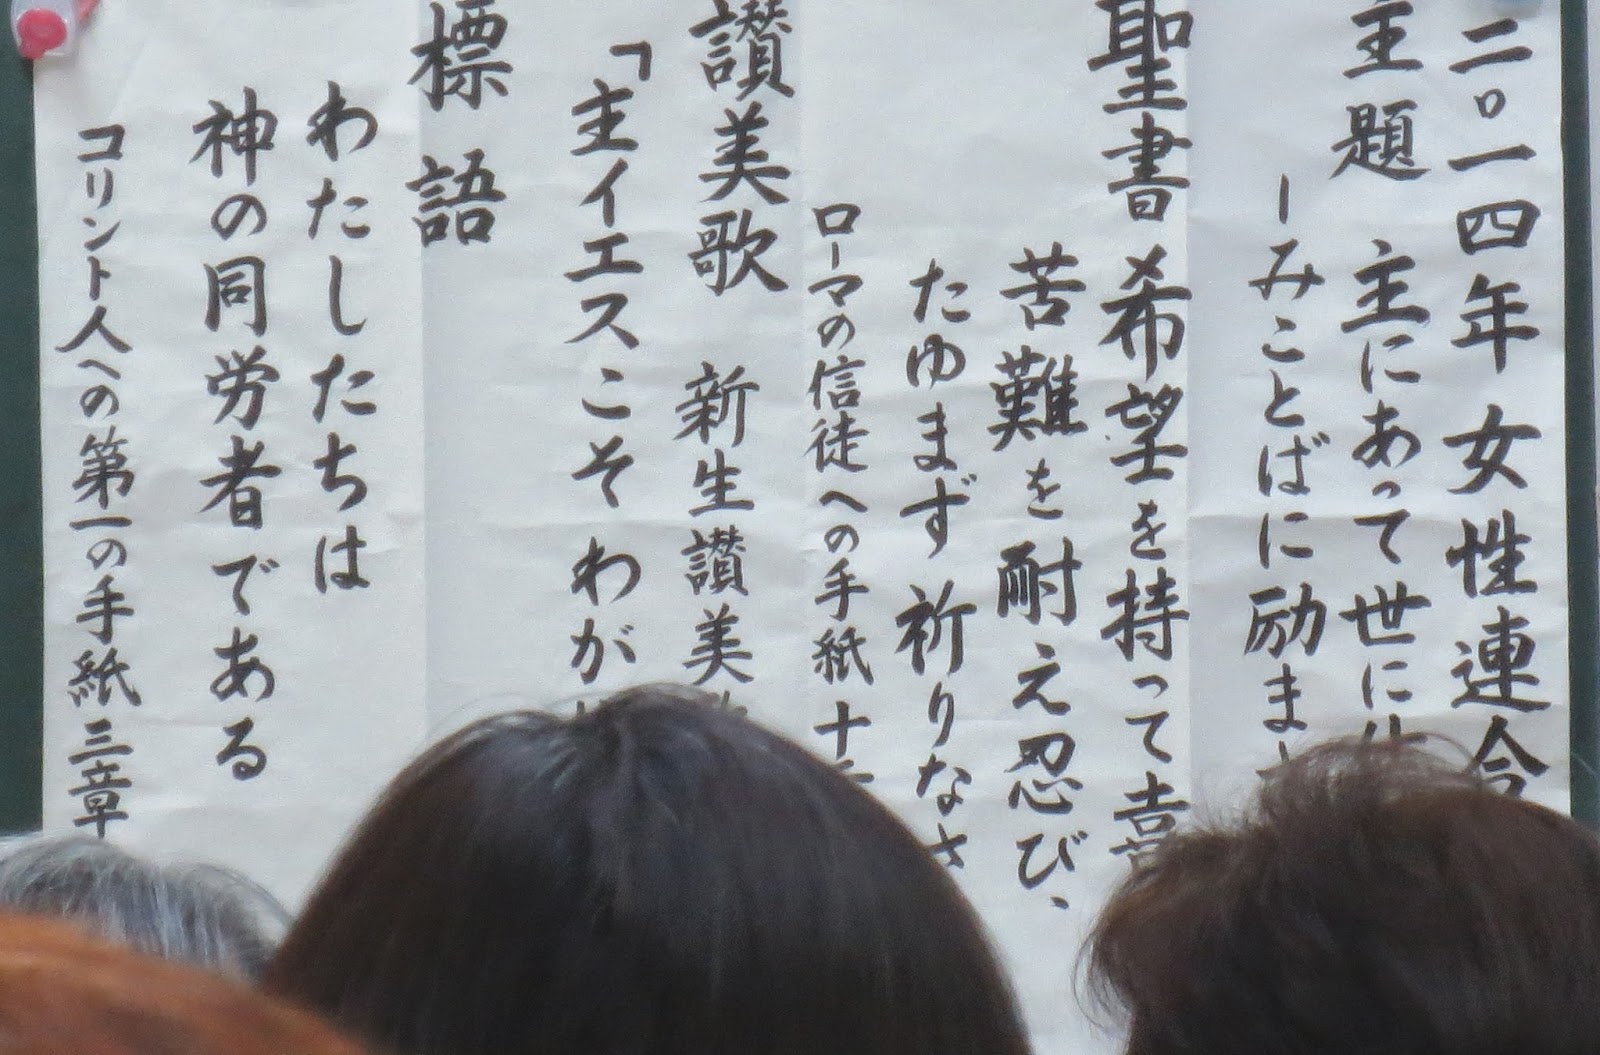 二〇一四年 女性連合
主題 主にあって世に
ーみことばに励ま
聖書 希望を持って喜
苦難を耐え忍び、
たゆまず祈りなさ
ローマの信徒への手紙 十
讃美歌 新生讃美
「主イエスこそわが
標語
わたしたちは
神の同労者である
コリント人への第一の手紙 三章